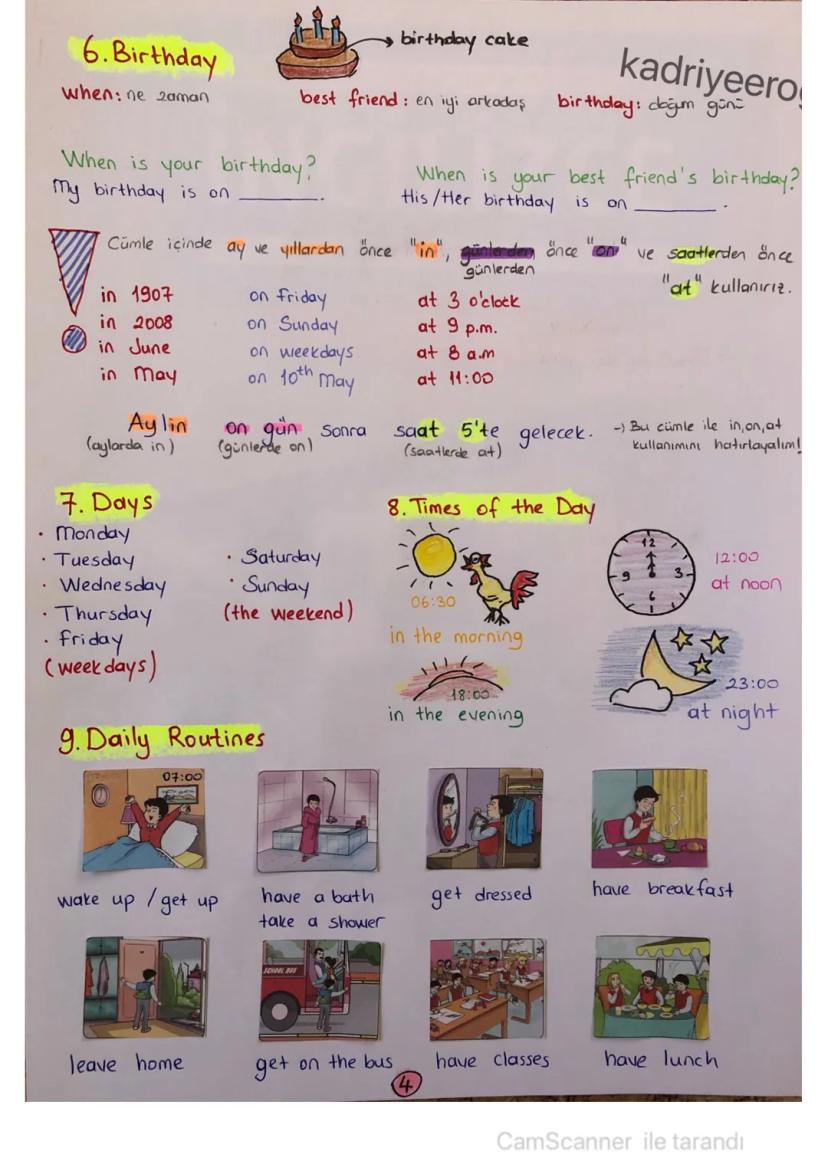 6. Birthday
birthday cake
kadriyeero
when: ne zaman
best friend: en iyi arkadaş
birthday: doğum günü
When is your birthday?
My birthday is on ________.
When is your best friend's birthday?
His/Her birthday is on ________.
Cümle içinde ay ve yıllardan önce "in", günlerden önce "on" ve saatlerden önce
günlerden
"at" kullanırız.
in 1907 on Friday at 3 o'clock
in 2008 on Sunday at 9 p.m.
in June on weekdays at 8 a.m
in May on 10th May at 11:00
Aylin on gün sonra saat 5'te gelecek.
(aylarda in) (günlerde on) (saatlerde at)
-) Bu cümle ile in, on, at
kullanımını hatırlayalım!
7. Days
· Monday
· Tuesday
· Wednesday
· Thursday
· Friday
(weekdays)
· Saturday
· Sunday
(the weekend)
8. Times of the Day
06:30
in the morning
12
9 3
6
12:00
at noon
18:00
in the evening
23:00
at night
9. Daily Routines
07:00
wake up / get up
have a bath
take a shower
get dressed
have breakfast
SCHOOL BUS
leave home
get on the bus
have classes
have lunch
4
CamScanner ile tarandı